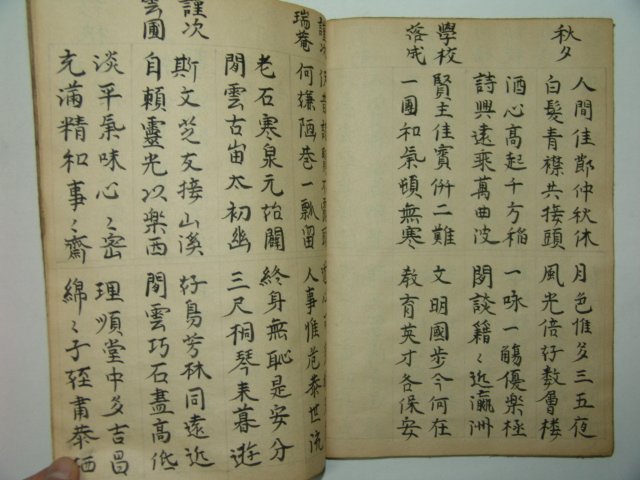 秋夕
人間佳節仲秋休 月色惟多三五夜
白髮青襟共接頭 風光倍好數層樓
酒心高起千方稻 一咏一觴優樂極
詩興遠乘萬曲波 閒談籍〻近瀛洲
學校
落成
賢主佳賓併二難 文明國步今何在
一團和氣頓無寒 教育英才各保安
謹次
瑞菴
何嫌陋巷一瓢留 人事惟危泰世流
老石寒泉元始闢 終身無恥是安分
閒雲古宙太初幽 三尺桐琴來暮遊
謹次
雲圃
斯文芝友接山溪 好鳥芳林同遠近
自賴靈光以樂西 閒雲巧石盡高低
淡平氣味心〻密 理順堂中多吉昌
充滿精和事〻齋 綿〻子姪肅恭栖